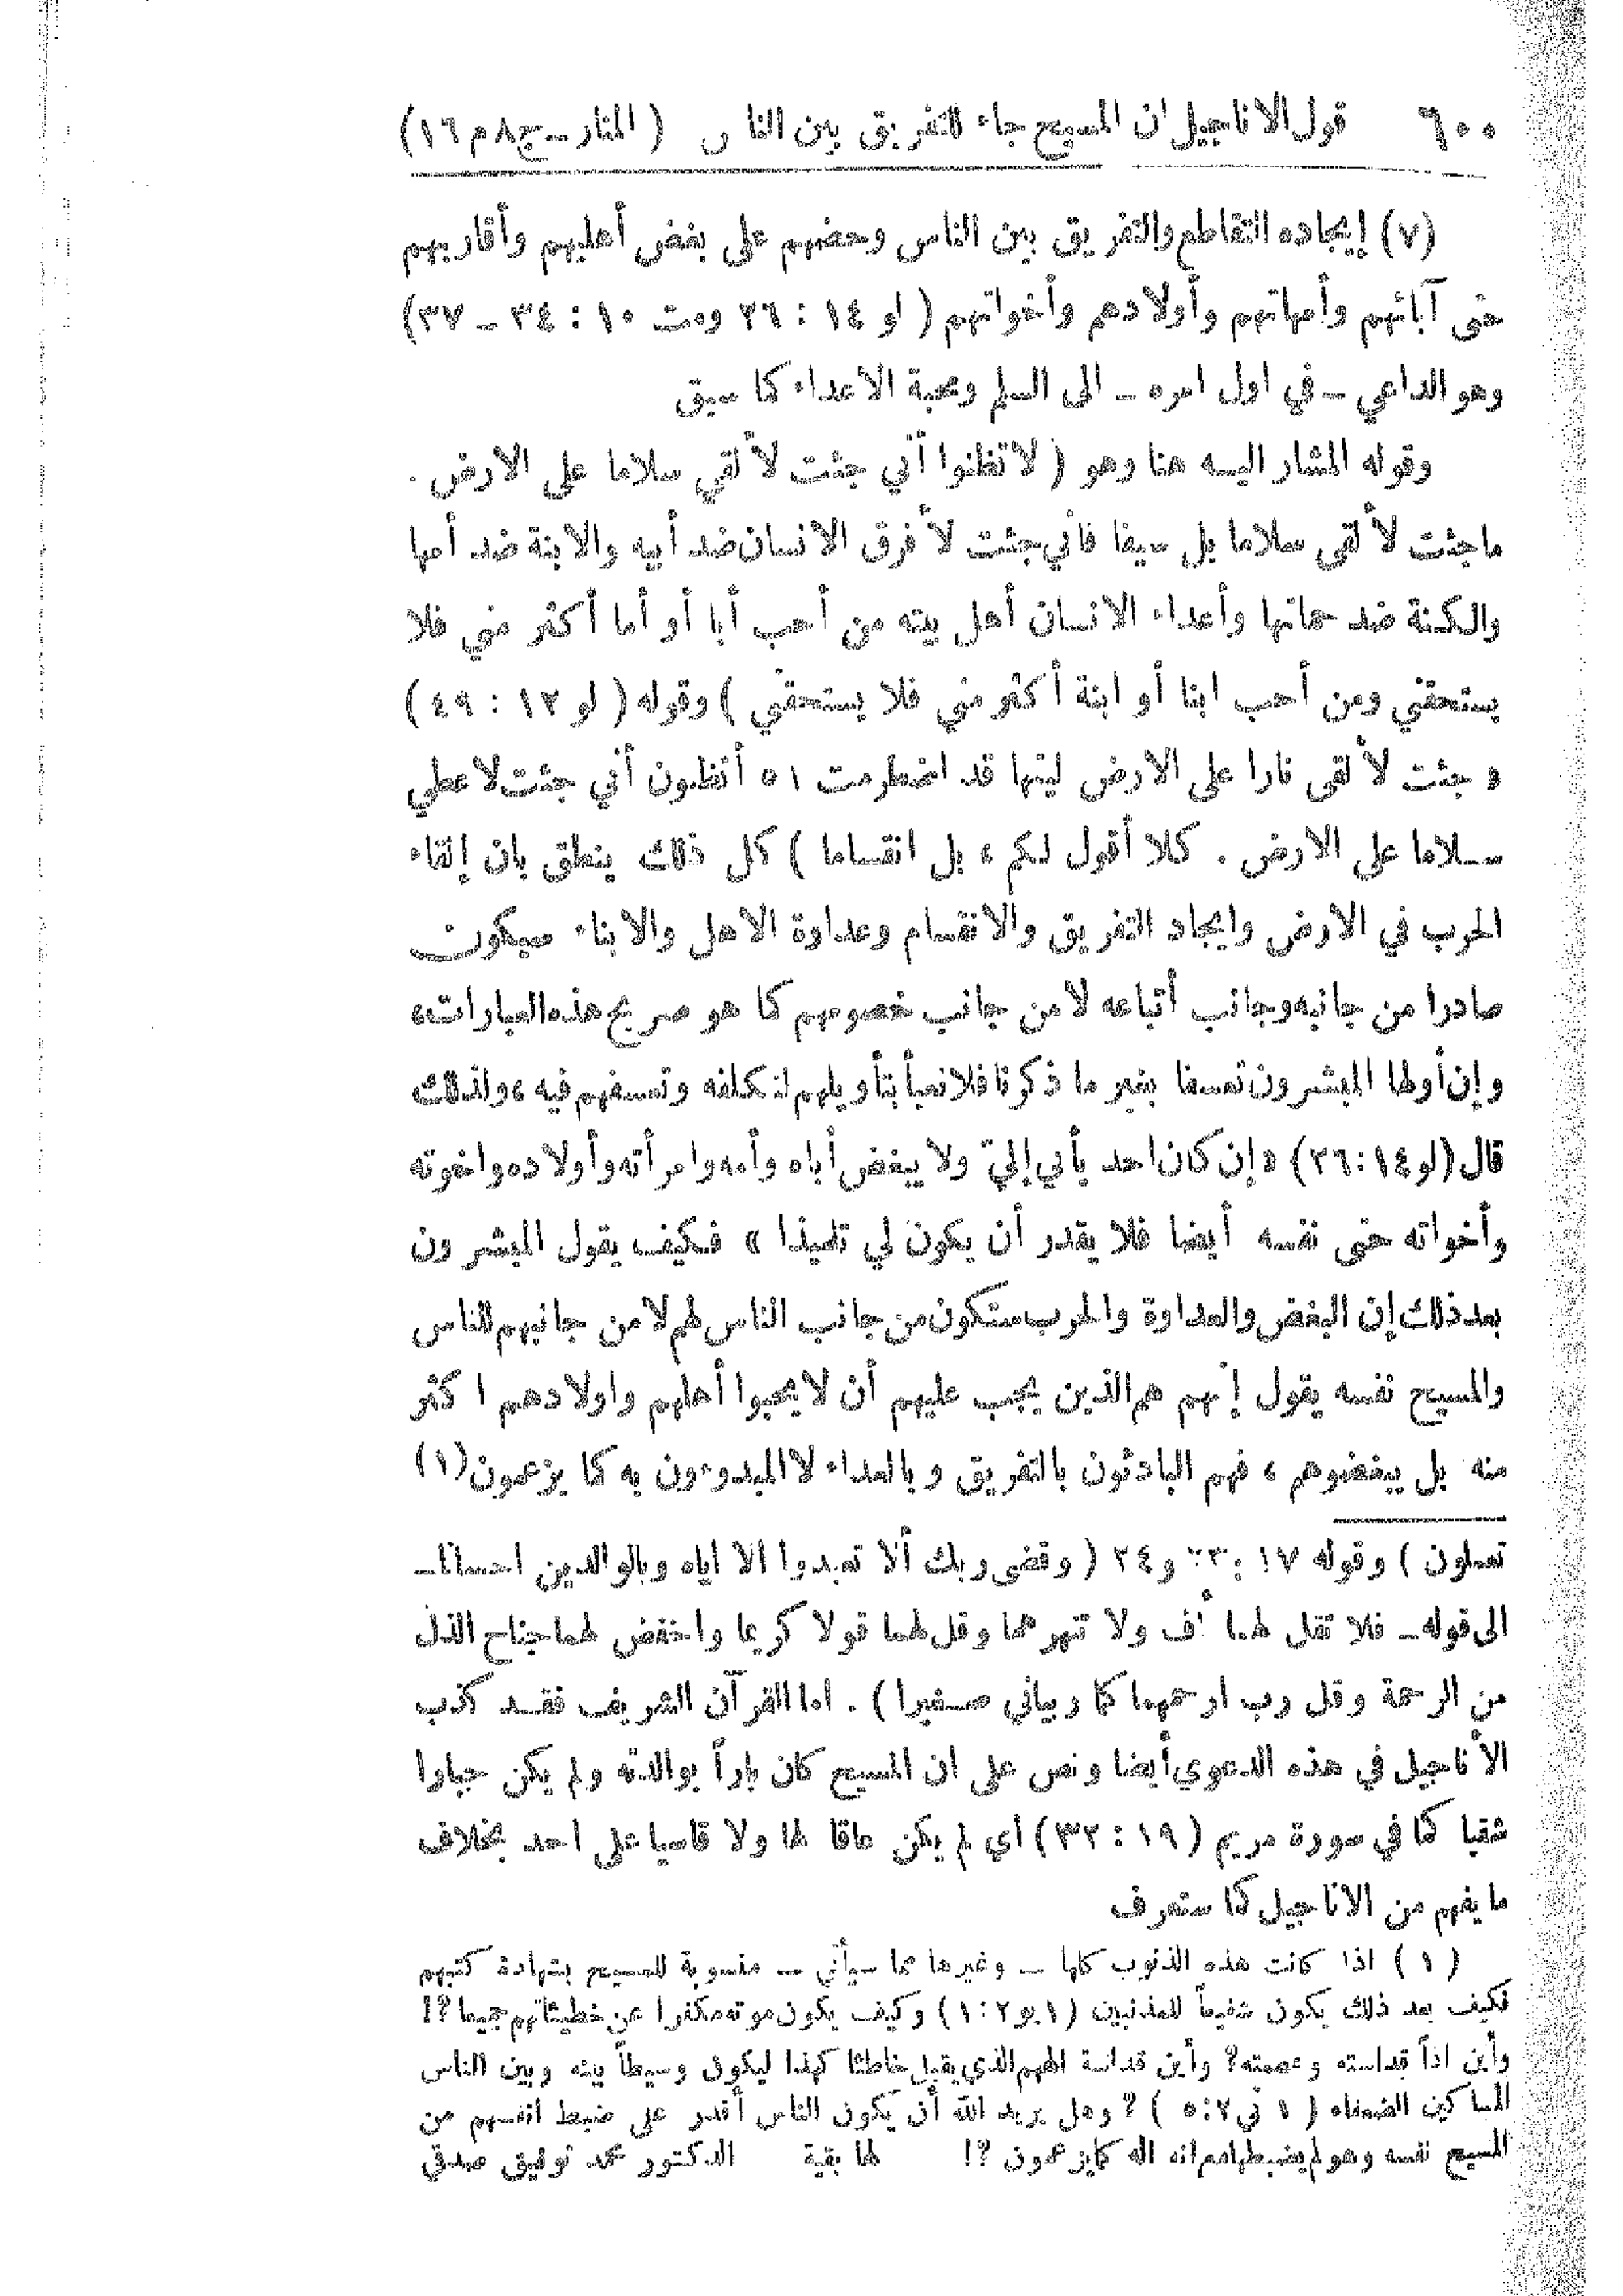 ٦٠٠ قول الاناجيل ان المسيح جاء للتفريق بين الناس (المنار ـ ج ٨ م ١٦)
(٧) إيجاده التقاطع والتفريق بين الناس وحضهم على بغض أهليهم وأقاربهم
حتى آبائهم وأمهاتهم وأولادهم وأخواتهم ( لو ١٤ : ٢٦ ومت ١٠ : ٣٤ ـ ٣٧)
وهو الداعي ـ في اول امره ـ الى السلم ومحبة الاعداء كما سبق
وقوله المشار اليه هنا وهو ( لا تظنوا أني جئت لألقي سلاما على الارض .
ماجئت لألقى سلاما بل سيفا فاني جئت لأفرق الانسان ضد أبيه والابنة ضد أمها
والكنة ضد حماتها وأعداء الانسان أهل بيته من أحب أبا أو أما أكثر مني فلا
يستحقني ومن أحب ابنا أو ابنة أكثر مني فلا يستحقني ) وقوله ( لو ١٢ : ٤٩ )
« جئت لألقى نارا على الارض ليتها قد اضطرمت ٥١ أتظنون أني جئت لاعطي
سلاما على الارض . كلا أقول لكم ، بل انقساما ) كل ذلك ينطق بان إلقاء
الحرب في الارض وايجاد التفريق والانقسام وعداوة الاهل والابناء سيكون
صادرا من جانبه وجانب أتباعه لا من جانب خصومهم كما هو صريح هذه العبارات،
وإن أولها المبشرون تعسفا بغير ما ذكرنا فلا نعبأ بتأويلهم لتكلفه وتعسفهم فيه ، ولذلك
قال (لو١٤:٢٦) «إن كان احد يأتي إليّ ولا يبغض أباه وأمه وامرأته وأولاده واخوته
وأخواته حتى نفسه أيضا فلا يقدر أن يكون لي تلميذا » فكيف يقول المبشرون
بعد ذلك إن البغض والعداوة والحرب ستكون من جانب الناس لهم لا من جانبهم للناس
والمسيح نفسه يقول إنهم هم الذين يجب عليهم أن لا يحبوا أهلهم واولادهم اكثر
منه بل يبغضوهم ، فهم البادئون بالتفريق وبالعداء لا المبدوءون به كما يزعمون (١)
تعملون ) وقوله ١٧ : ٢٣ و٢٤ ( وقضى ربك ألا تعبدوا الا اياه وبالوالدين احسانا ـ
الى قوله ـ فلا تقل لهما أف ولا تنهرهما وقل لهما قولا كريما واخفض لهما جناح الذل
من الرحمة وقل رب ارحمهما كما ربياني صغيرا ) . اما القرآن الشريف فقد كذب
الأناجيل في هذه الدعوي أيضا ونص على ان المسيح كان باراً بوالدته ولم يكن جبارا
شقيا كما في سورة مريم (١٩ : ٣٢) أي لم يكن عاقا لها ولا قاسيا على احد بخلاف
ما يفهم من الاناجيل كما ستعرف
(١) اذا كانت هذه الذنوب كلها ـ وغيرها مما سيأتي ـ منسوبة للمسيح بشهادة كتبهم
فكيف بعد ذلك يكون شفيعاً للمذنبين (١يو٢:١) وكيف يكون موته مكفرا عن خطيئاتهم جميعا ؟!
وأين اذاً قداسته وعصمته؟ وأين قداسة الههم الذي يقبل خاطئا كهذا ليكون وسيطاً بينه وبين الناس
المساكين الضعفاء ( ١ تي٢:٥ ) ؟ وهل يريد الله أن يكون الناس أقدر على ضبط انفسهم من
المسيح نفسه وهو لم يضبطها مع انه اله كما يزعمون ؟! لها بقية الدكتور محمد توفيق صدقي